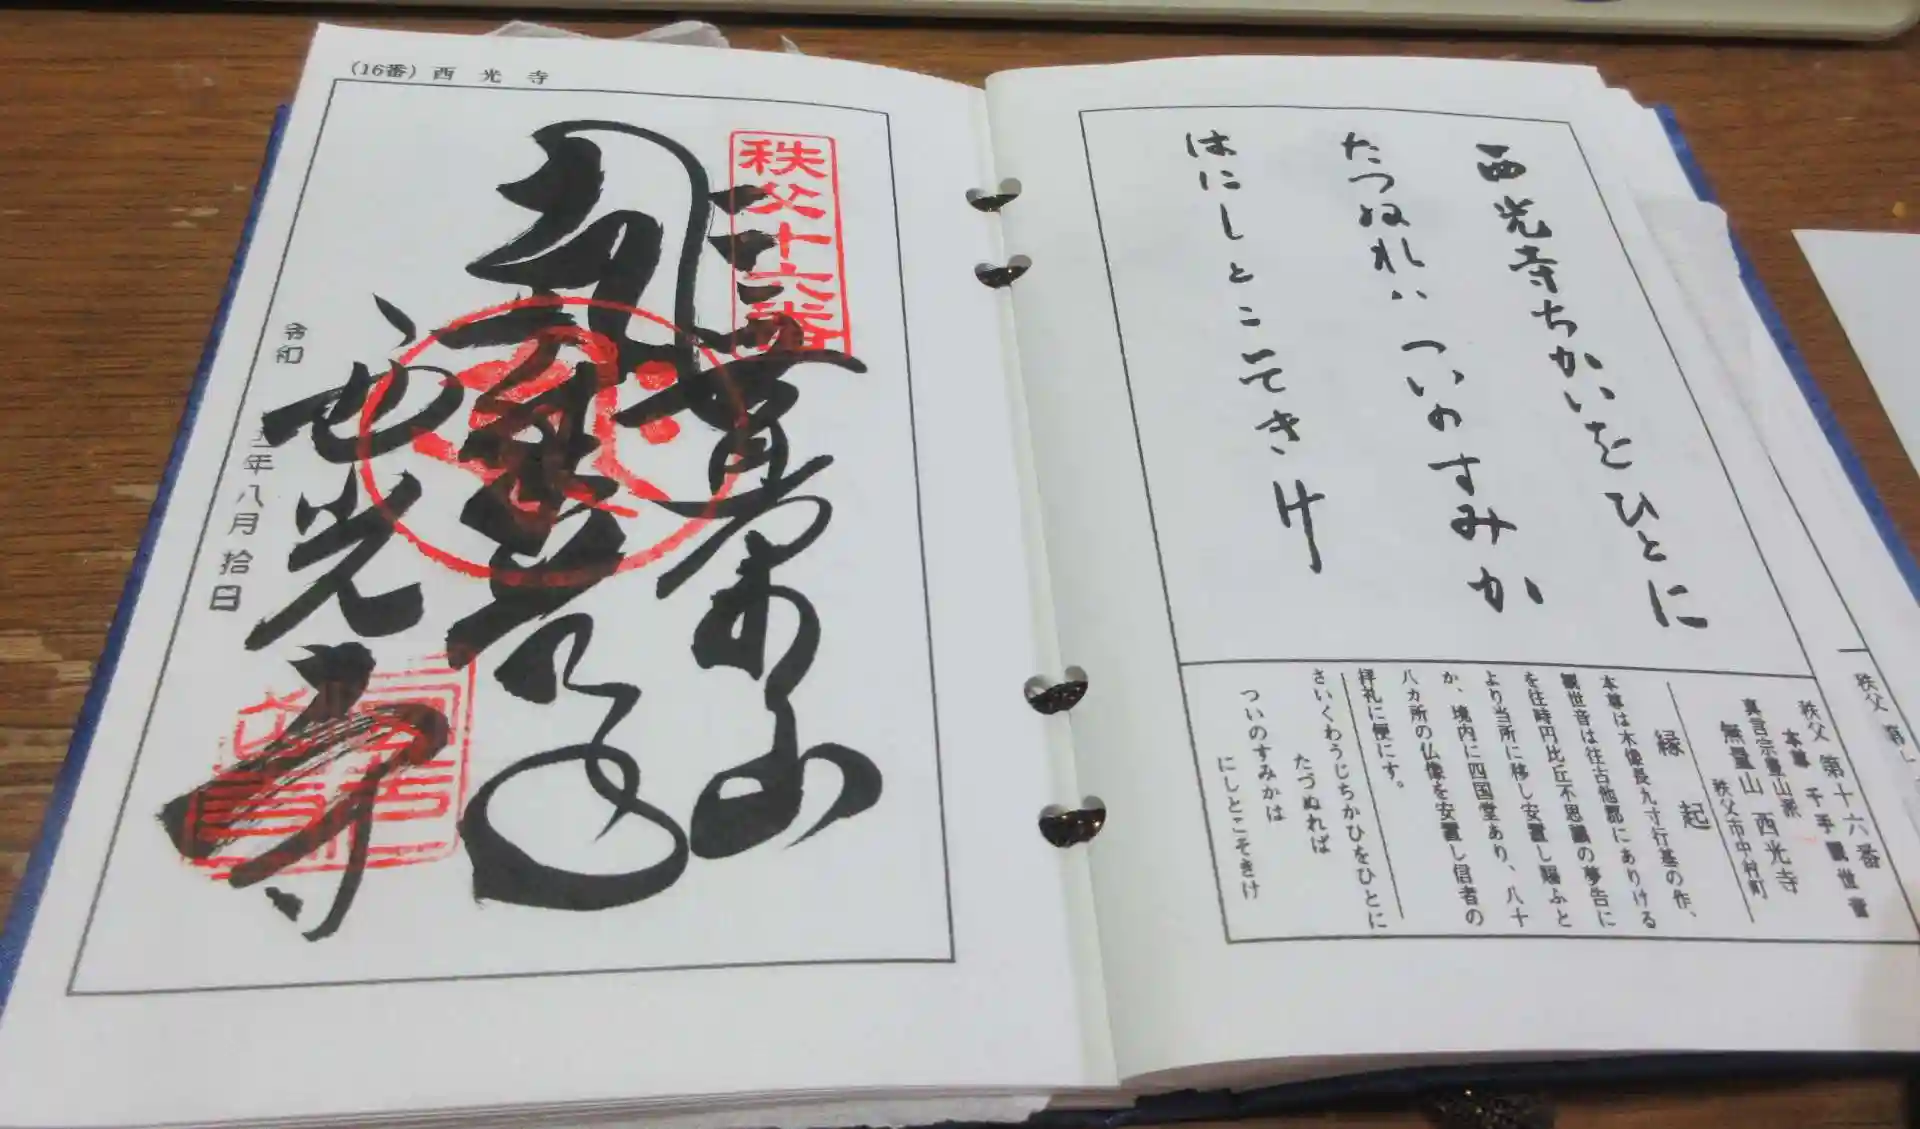 秩父 第十六番
本尊 千手観世音
真言宗豊山派
無量山 西光寺
秩父市中村町
縁起
本尊は木像長九寸行基の作、
観世音は往古他郡にありける
を往時円比丘不思議の夢告に
より当所に移し安置し賜ふと
か、境内に四国堂あり、八十
八カ所の仏像を安置し信者の
拝礼に便にす。
さいくわうじちかひをひとに
たづぬれば
ついのすみかは
にしとこそきけ
西光寺ちかいをひとに
たつぬれハついのすみか
はにしとこそきけ
(16番) 西光寺
秩父十六番
無量山
西光寺
令和 五年八月拾日